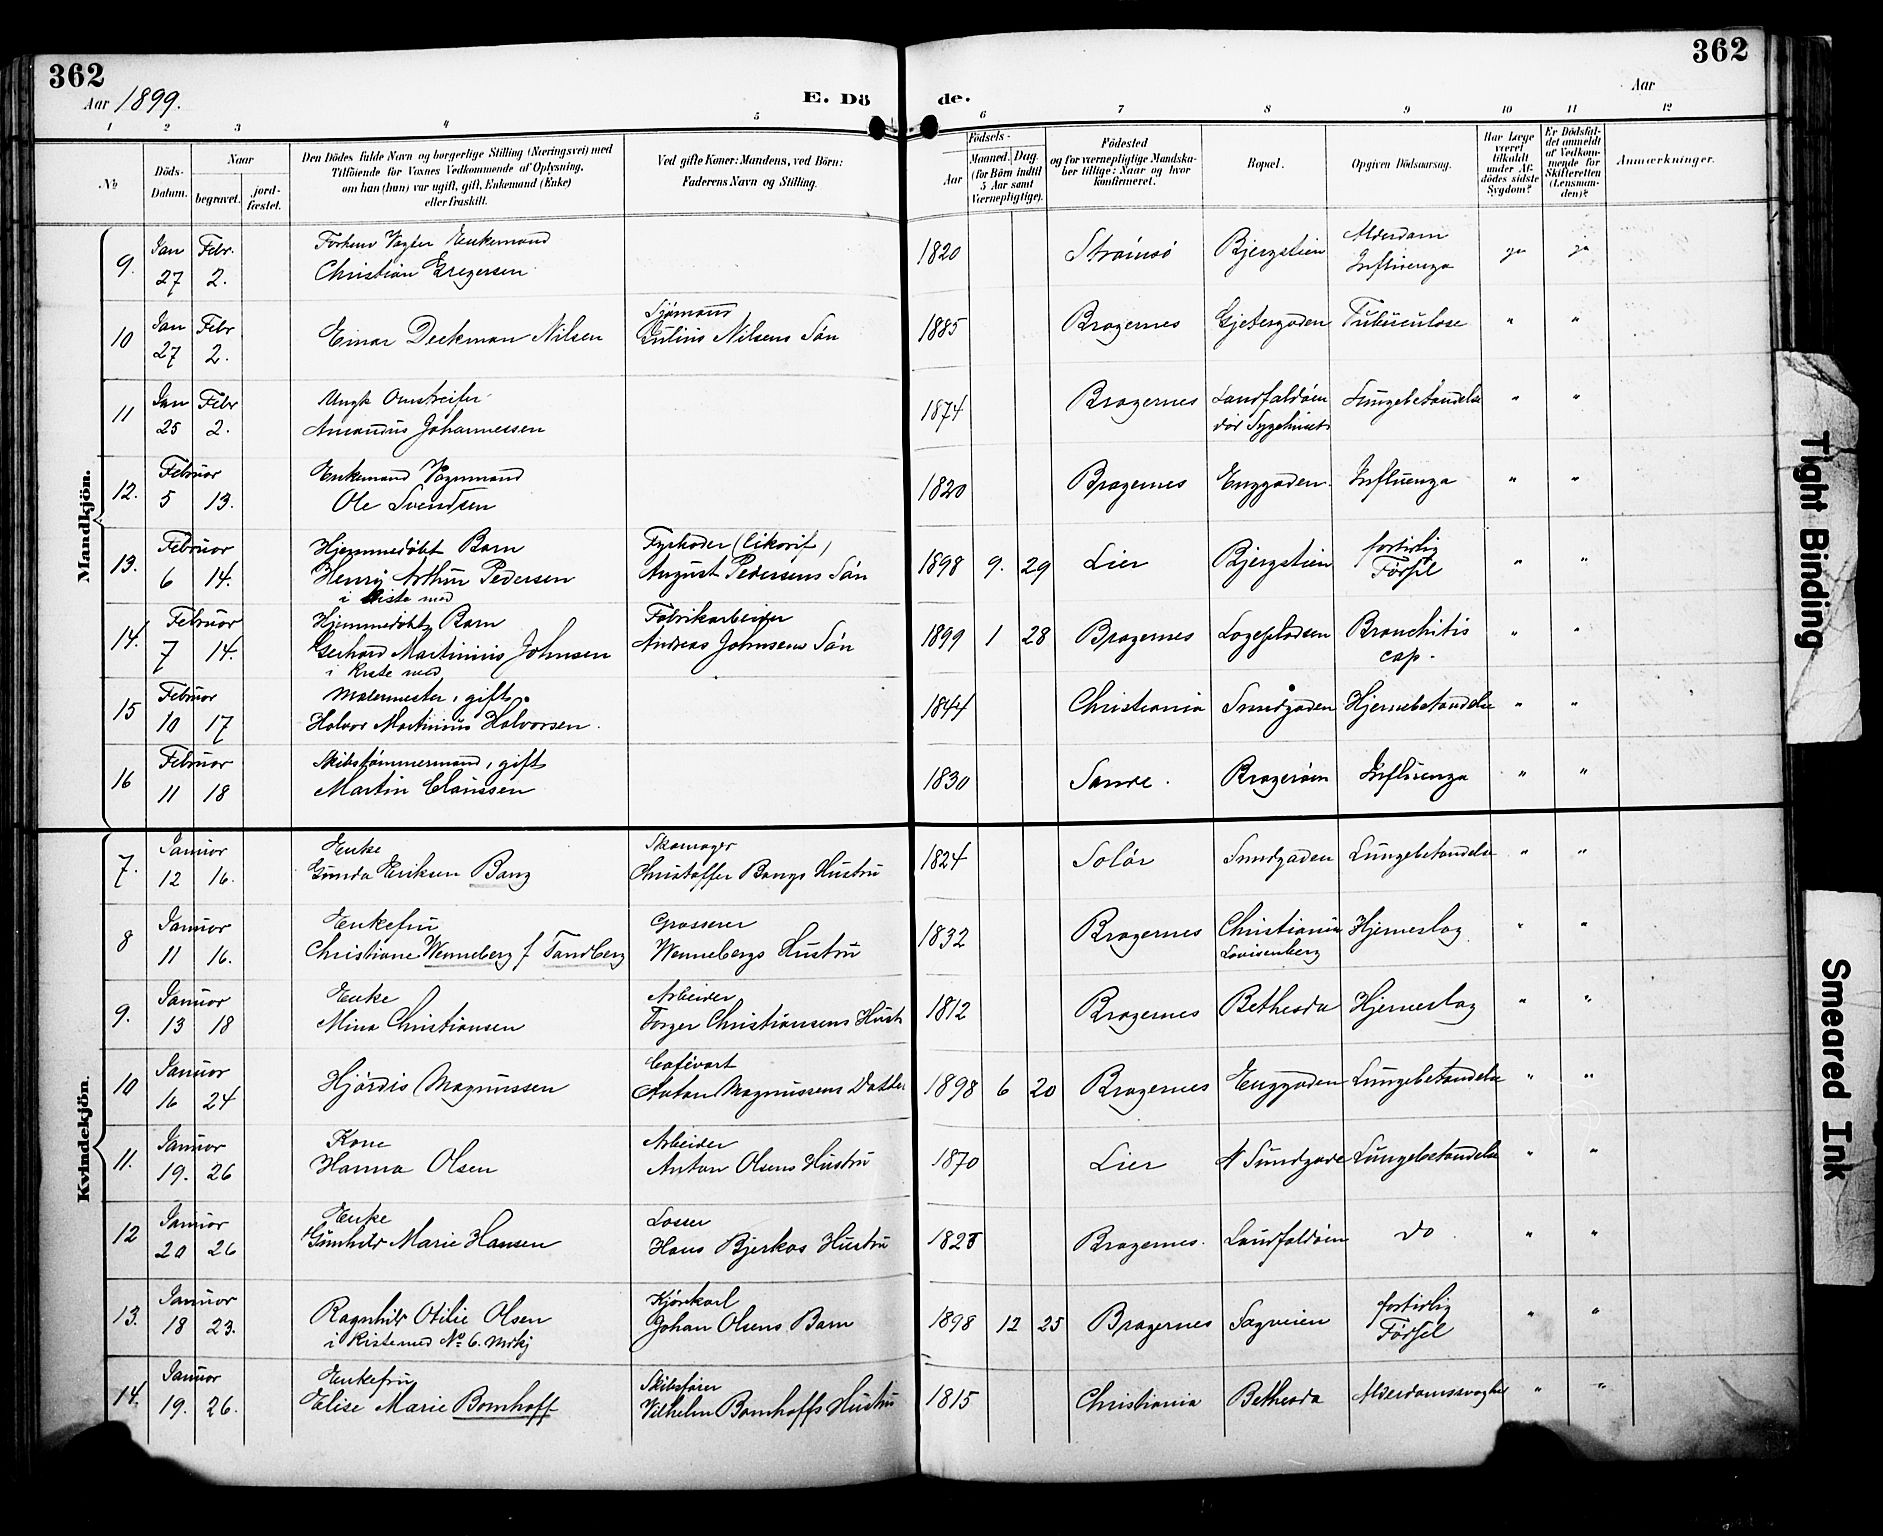 362
362
Aar 1899.
E. Dö de.
Aar
1 2 3 4 5 6 7 8 9 10 11 12
No
Döds-Datum.
Naar
begravet.
jord-fæstet.
Den Dödes fulde Navn og borgerlige Stilling (Næringsvei) med
Tilföiende for Voxnes Vedkommende af Oplysning,
om han (hun) var ugift, gift, Enkemand (Enke)
eller fraskilt.
Ved gifte Koner: Mandens, ved Börn:
Faderens Navn og Stilling.
Födsels-
Aar
Maaned. Dag.
(for Börn indtil
5 Aar samt
Værnepligtige).
Födested
og for værnepligtige Mandska-
ber tillige: Naar og hvor
konfirmeret.
Bopæl.
Opgiven Dödsaarsag.
Har Læge
været
tilkaldt
under Af-
dödes sidste
Sygdom?
Er Dödsfal-
det anmeldt
af Vedkom-
mende for
Skifteretten
(Lensman-
den)?
Anmærkninger.
Mandkjön.
9. Jan 27 Febr. 2. Forhenv Vægter Enkemand
Christian Gregersen 1820 Strømsø Bjergstien Alderdom
Influenza ja ja
10 Jan 27 Febr 2. Einar Deekman Nilsen Sjømand
Julius Nilsens Søn 1885 Bragernes Gjetergaden Tuberculose " "
11 Jan 25 Febr 2. Ungk Omstreifer
Amandus Johannessen 1874 Bragernes Landfaldøen
Sygehuset Lungebetændelse " "
12. Februar 5 13. Enkemand Vognmand
Ole Svendsen 1820 Bragernes Enggaden Influenza " "
13. Februar 6 14. Hjemmedøbt Barn
Henry Arthur Pedersen
i Kiste med Fyrbøder (Cikorif)
August Pedersens Søn 1898 9. 29 Lier Bjergstien fortidlig
Førsel " "
14. Februar 7 14. Hjemmedøbt Barn
Gerhard Martinius Johnsen
i Kiste med Fabrikarbeider
Andreas Johnsens Søn 1899 1 28 Bragernes Løgepladsen Bronchitis
cap. " "
15 Februar 10 17 Malermester, gift,
Halvor Martinius Halvorsen. 1844 Christiania Sundgaden Hjernebetændelse " "
16 Februar 11 18 Skibstømmermand, gift
Martin Claussen 1830 Sande. Bragerøen Influenza " "
Kvindekjön.
7. Januar 12 16. Enke
Gunda Eriksen Bang Skomager
Christoffer Bangs Hustru 1824 Solør Sundgaden Lungebetændelse " "
8 Januar 11 16. Enkefru
Christiane Wenneberg f Tandberg Grosserer
Wennebergs Hustru 1832 Bragernes Christiania
Lovisenberg Hjerneslag " "
9. Januar 13 18 Enke
Mina Christiansen Arbeider
Torger Christiansens Hust 1812 Bragernes Bethesda Hjerneslag " "
10 Januar 16 24 Hjørdis Magnussen Cafévært
Anton Magnussens Datter 1898 6 20 Bragernes Enggaden Lungebetændelse " "
11. Januar 19. 26 Kone
Hanna Olsen Arbeider
Anton Olsens Hustru 1870 Lier N Sundgade Lungebetændelse " "
12 Januar 20 26 Enke
Gunhild Marie Hansen Losser
Hans Bjerkås Hustru Bragernes. Landfaldøen do " "
13. Januar 18 23. Ragnhild Otilie Olsen
i Kiste med No 6. Mdkj Kjørekarl
Johan Olsens Barn 1898 12 25 Bragernes Sagveien fortidlig
Førsel " "
14. Januar 19. 26. Enkefru
Elise Marie Bomhoff Skibsfører
Vilhelm Bomhoffs Hustru 1815 Christiania Bethesda Alderdomssvaghed " "
Tight Binding
Smeared Ink